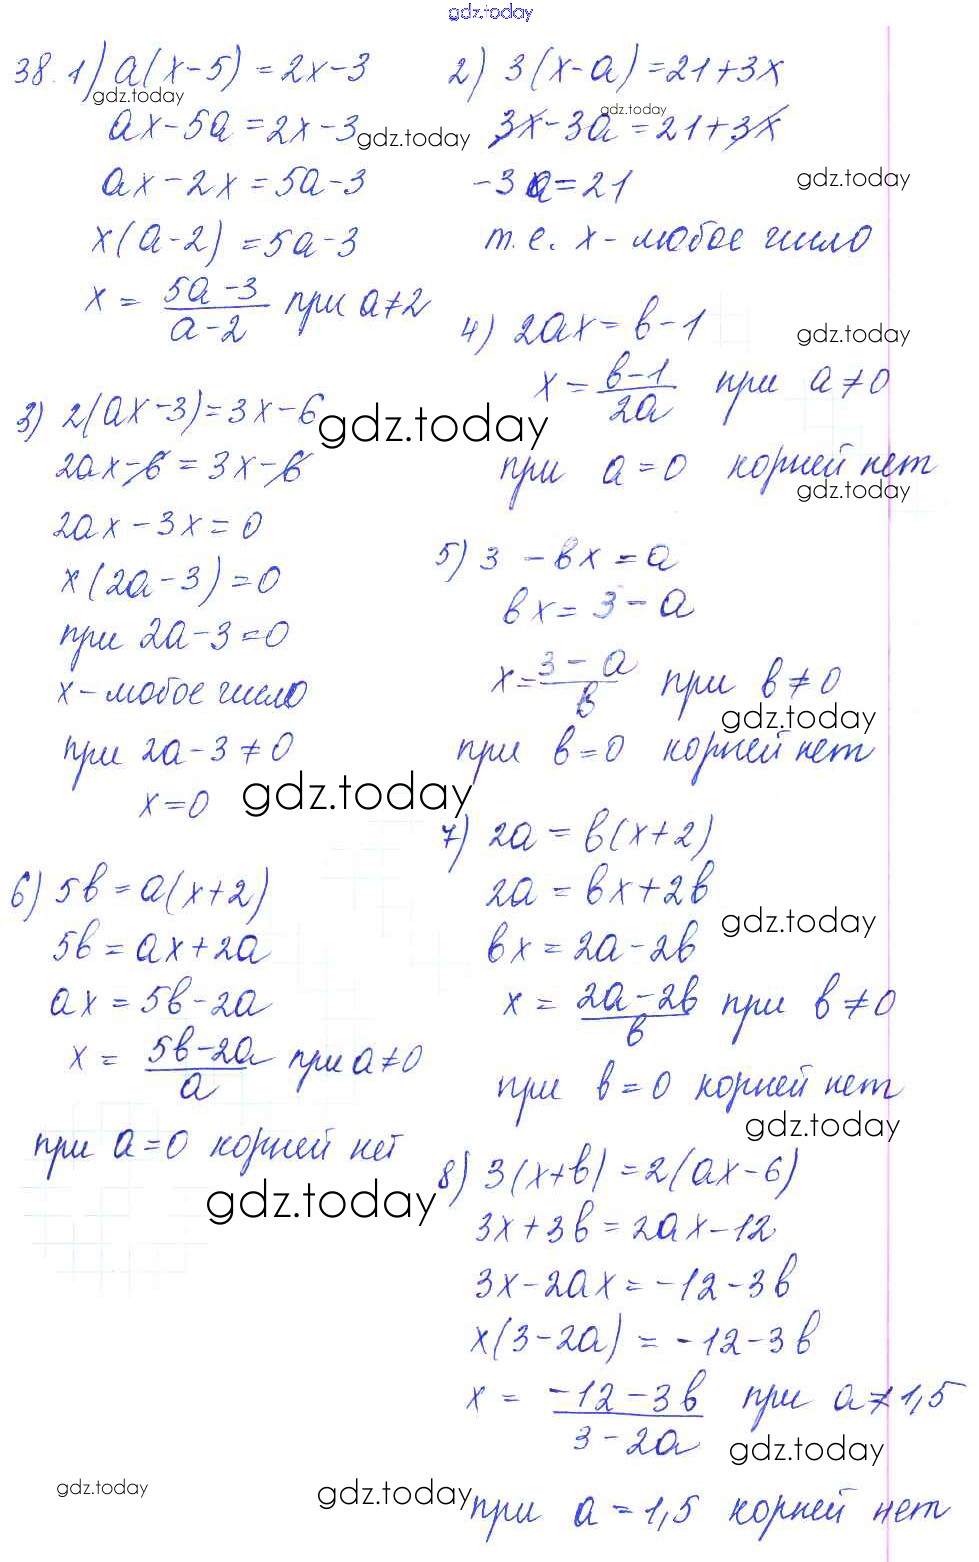 gdz.today
38. 1) a(x-5) = 2x-3
gdz.today
ax-5a = 2x-3
gdz.today
ax-2x = 5a-3
x(a-2) = 5a-3
x = (5a-3)/(a-2) при a≠2
2) 3(x-a) = 21+3x
gdz.today
3x-3a = 21+3x
-3a = 21
gdz.today
т.е. x - любое число
3) 2(ax-3) = 3x-6
gdz.today
2ax-6 = 3x-6
2ax-3x = 0
x(2a-3) = 0
при 2a-3 = 0
x - любое число
при 2a-3 ≠ 0
x = 0
gdz.today
4) 2ax = b-1
gdz.today
x = (b-1)/(2a) при a≠0
при a = 0 корней нет
gdz.today
5) 3 - bx = a
bx = 3 - a
x = (3 - a)/b при b≠0
gdz.today
при b = 0 корней нет
6) 5b = a(x+2)
5b = ax+2a
ax = 5b-2a
x = (5b-2a)/a при a≠0
при a = 0 корней нет
gdz.today
7) 2a = b(x+2)
2a = bx+2b
gdz.today
bx = 2a-2b
x = (2a-2b)/b при b≠0
при b = 0 корней нет
gdz.today
8) 3(x+b) = 2(ax-6)
3x+3b = 2ax-12
3x-2ax = -12-3b
x(3-2a) = -12-3b
x = (-12-3b)/(3-2a) при a≠1,5
gdz.today
gdz.today
gdz.today
при a = 1,5 корней нет